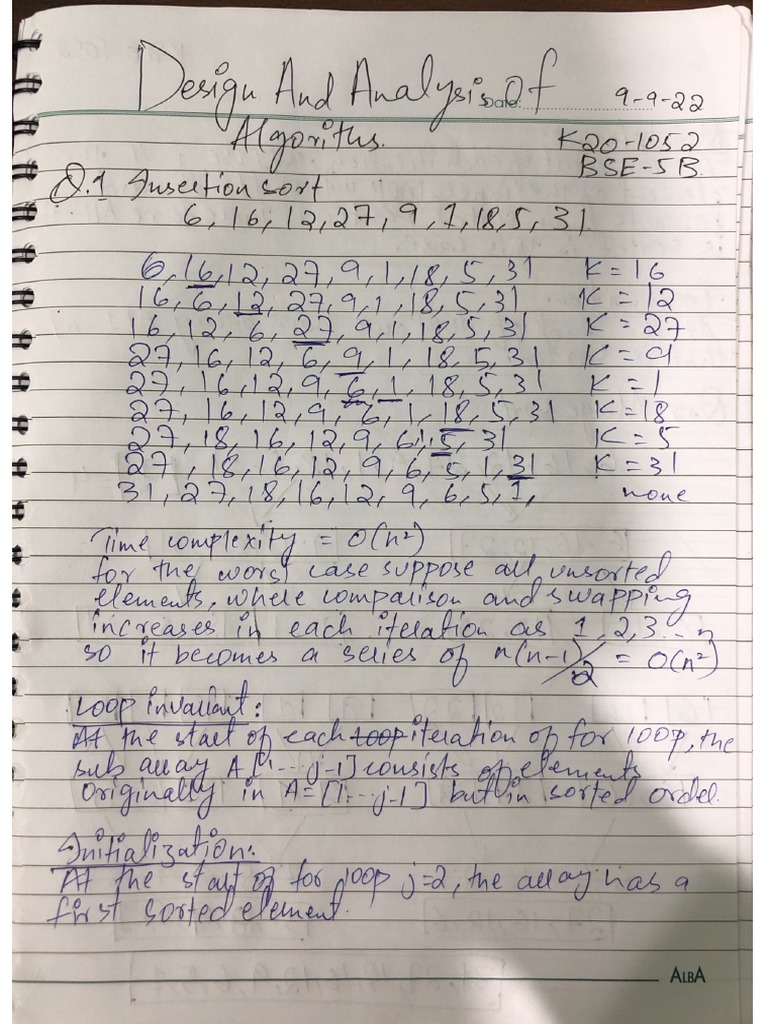 Design And Analysis Of
Date: 9-9-22
Algoriths.
K20-1052
BSE-5B.
Q.1 Insertion sort
6, 16, 12, 27, 9, 1, 18, 5, 31
6, 16, 12, 27, 9, 1, 18, 5, 31 K = 16
16, 6, 12, 27, 9, 1, 18, 5, 31 K = 12
16, 12, 6, 27, 9, 1, 18, 5, 31 K = 27
27, 16, 12, 6, 9, 1, 18, 5, 31 K = 9
27, 16, 12, 9, 6, 1, 18, 5, 31 K = 1
27, 16, 12, 9, 6, 1, 18, 5, 31 K = 18
27, 18, 16, 12, 9, 6, 1, 5, 31 K = 5
27, 18, 16, 12, 9, 6, 5, 1, 31 K = 31
31, 27, 18, 16, 12, 9, 6, 5, 1, none
Time complexity = O(n²)
for the worst case suppose all unsorted
elements, where comparison and swapping
increases in each iteration as 1, 2, 3 .. n
so it becomes a series of n(n-1)/2 = O(n²)
Loop invariant:
At the start of each loop iteration of for loop, the
sub array A[1...j-1] consists of elements
Originally in A=[1...j-1] but in sorted order.
Initialization:
At the start of for loop j=2, the array has a
first sorted element.
ALBA